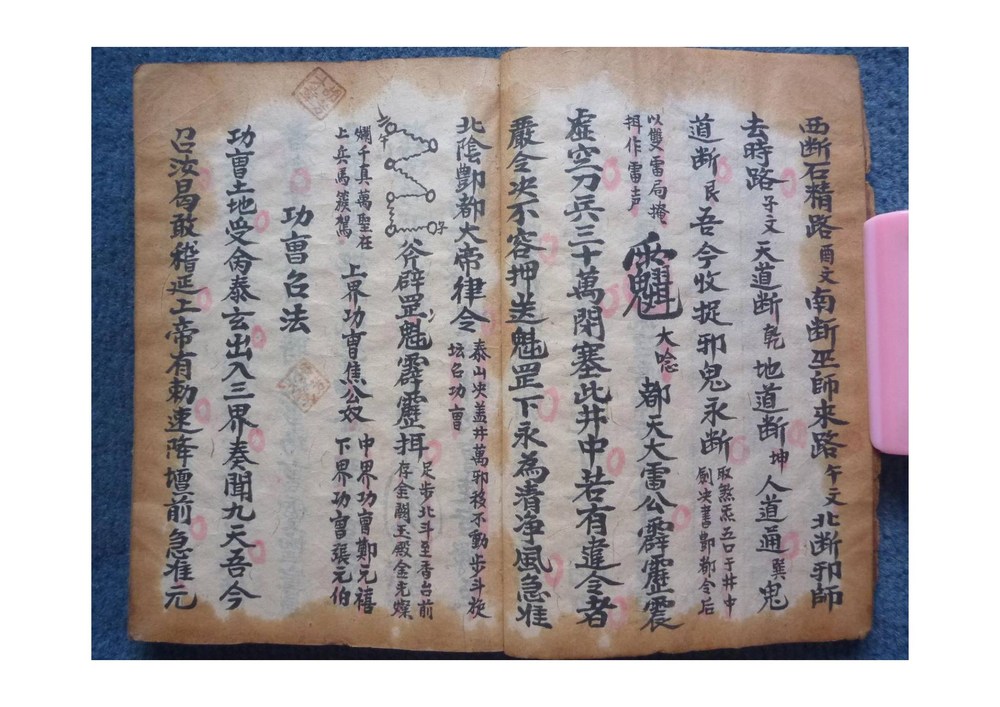 西断石精路酉文南断巫师來路午文北断邪师
去時路子文天道断乾地道断坤人道通巽鬼
道断艮吾今收捉邪鬼永断取煞炁五口于井中
劍决書酆都令后
以雙雷局掩
揖作雷声
大唸都天大雷公霹靂震
虚空刀兵三十萬閉塞此井中若有違令者
嚴令决不容押送魁罡下永為清净風急准
北陰酆都大帝律令泰山决盖井萬邪移不動步斗旋
坛召功曹
午
子
斧辟罡魁霹靂揖足步北斗至香台前
存金闕玉殿金光燦
爛千真萬聖在
上兵馬簇駕
上界功曹焦公奴中界功曹鄭元禧
下界功曹張元伯
功曹召法
功曹土地受佩泰玄出入三界奏聞九天吾今
召汝曷敢稽延上帝有勅速降壇前急准元